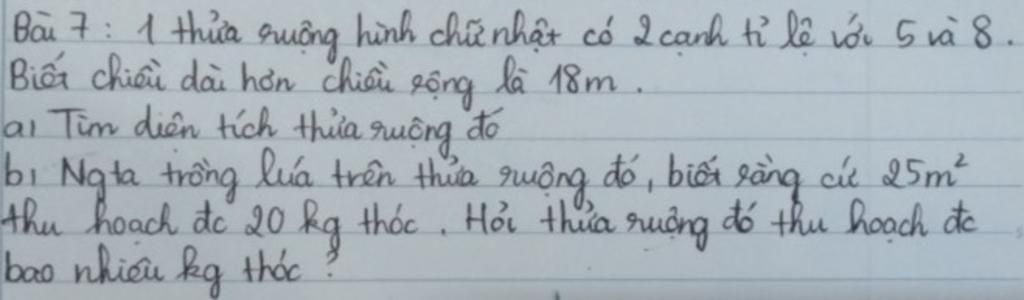 Bài 7: 1 thửa ruộng hình chữ nhật có 2 cạnh tỉ lệ với 5 và 8.
Biết chiều dài hơn chiều rộng là 18m.
a) Tìm diện tích thửa ruộng đó
b) Ngta trồng lúa trên thửa ruộng đó, biết rằng cứ 25m²
thu hoạch đc 20 kg thóc. Hỏi thửa ruộng đó thu hoạch đc
bao nhiêu kg thóc?